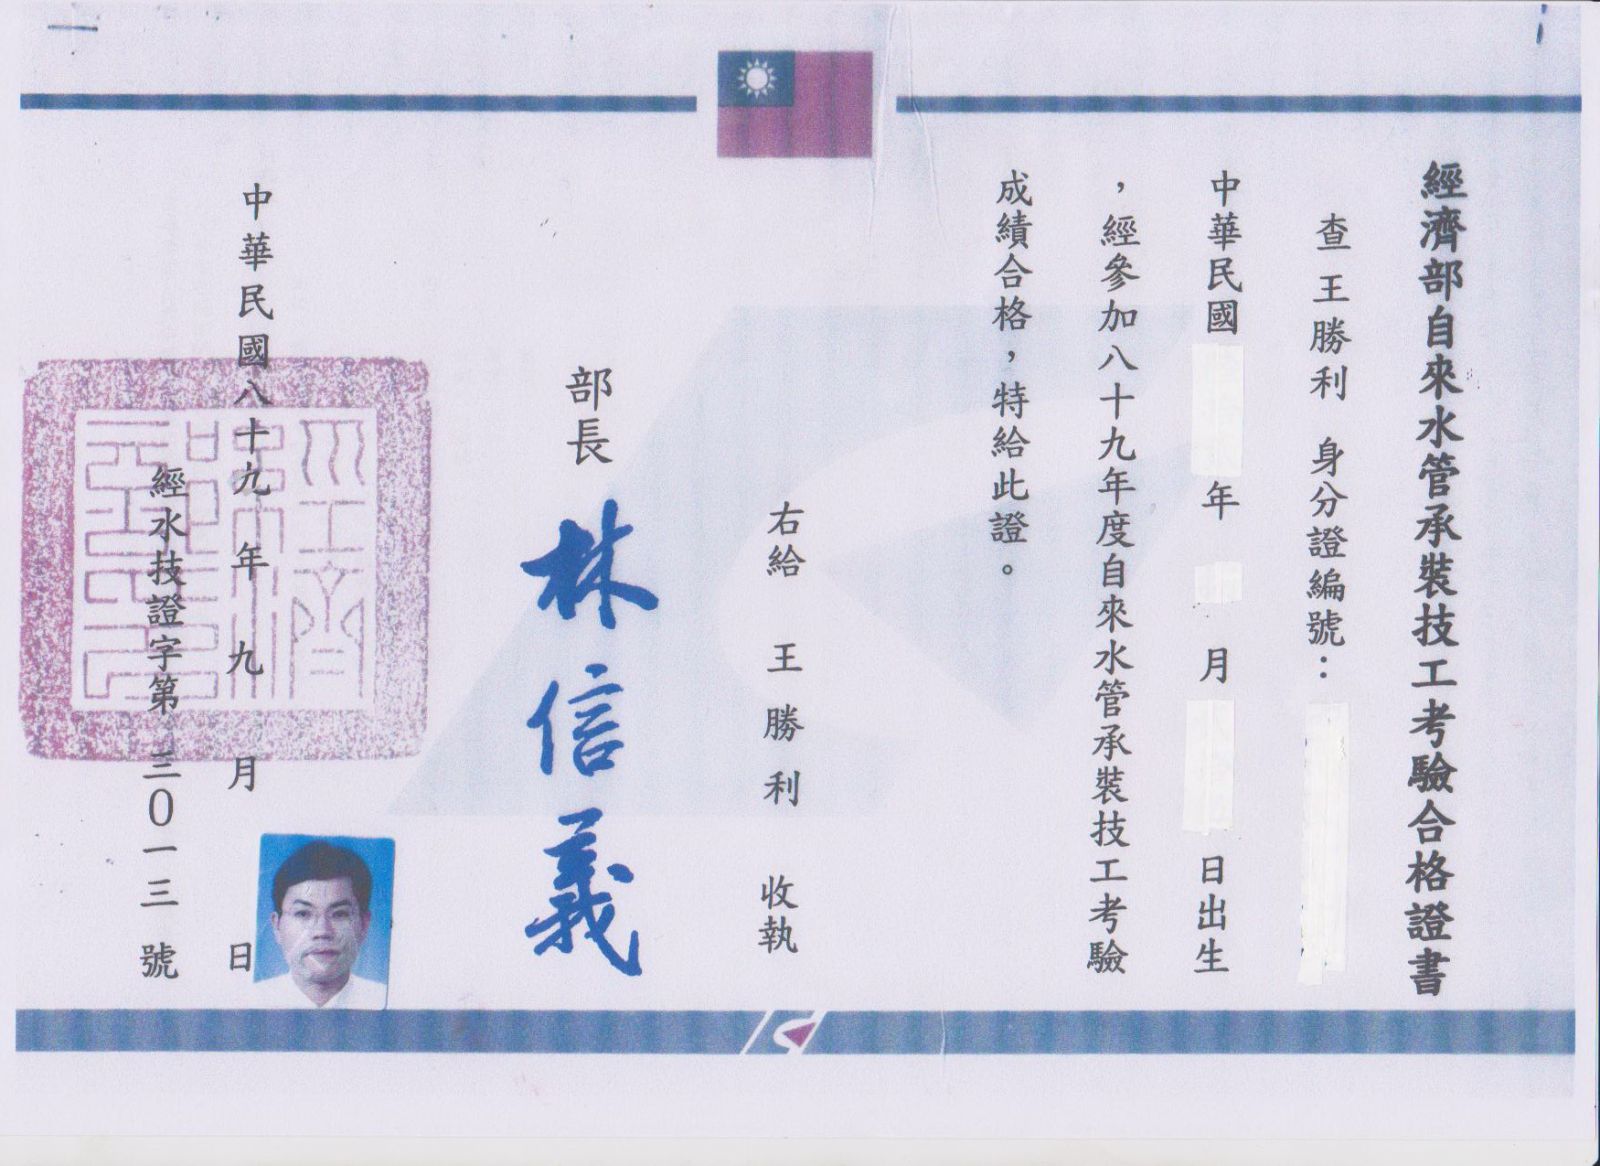 經濟部自來水管承裝技工考驗合格證書
查王勝利 身分證編號：
中華民國 年 月 日出生
，經參加八十九年度自來水管承裝技工考驗
成績合格，特給此證。
右給 王勝利 收執
部長 林信義
中華民國八十九年 九 月 日
經水技證字第 三〇一三 號
經濟部印